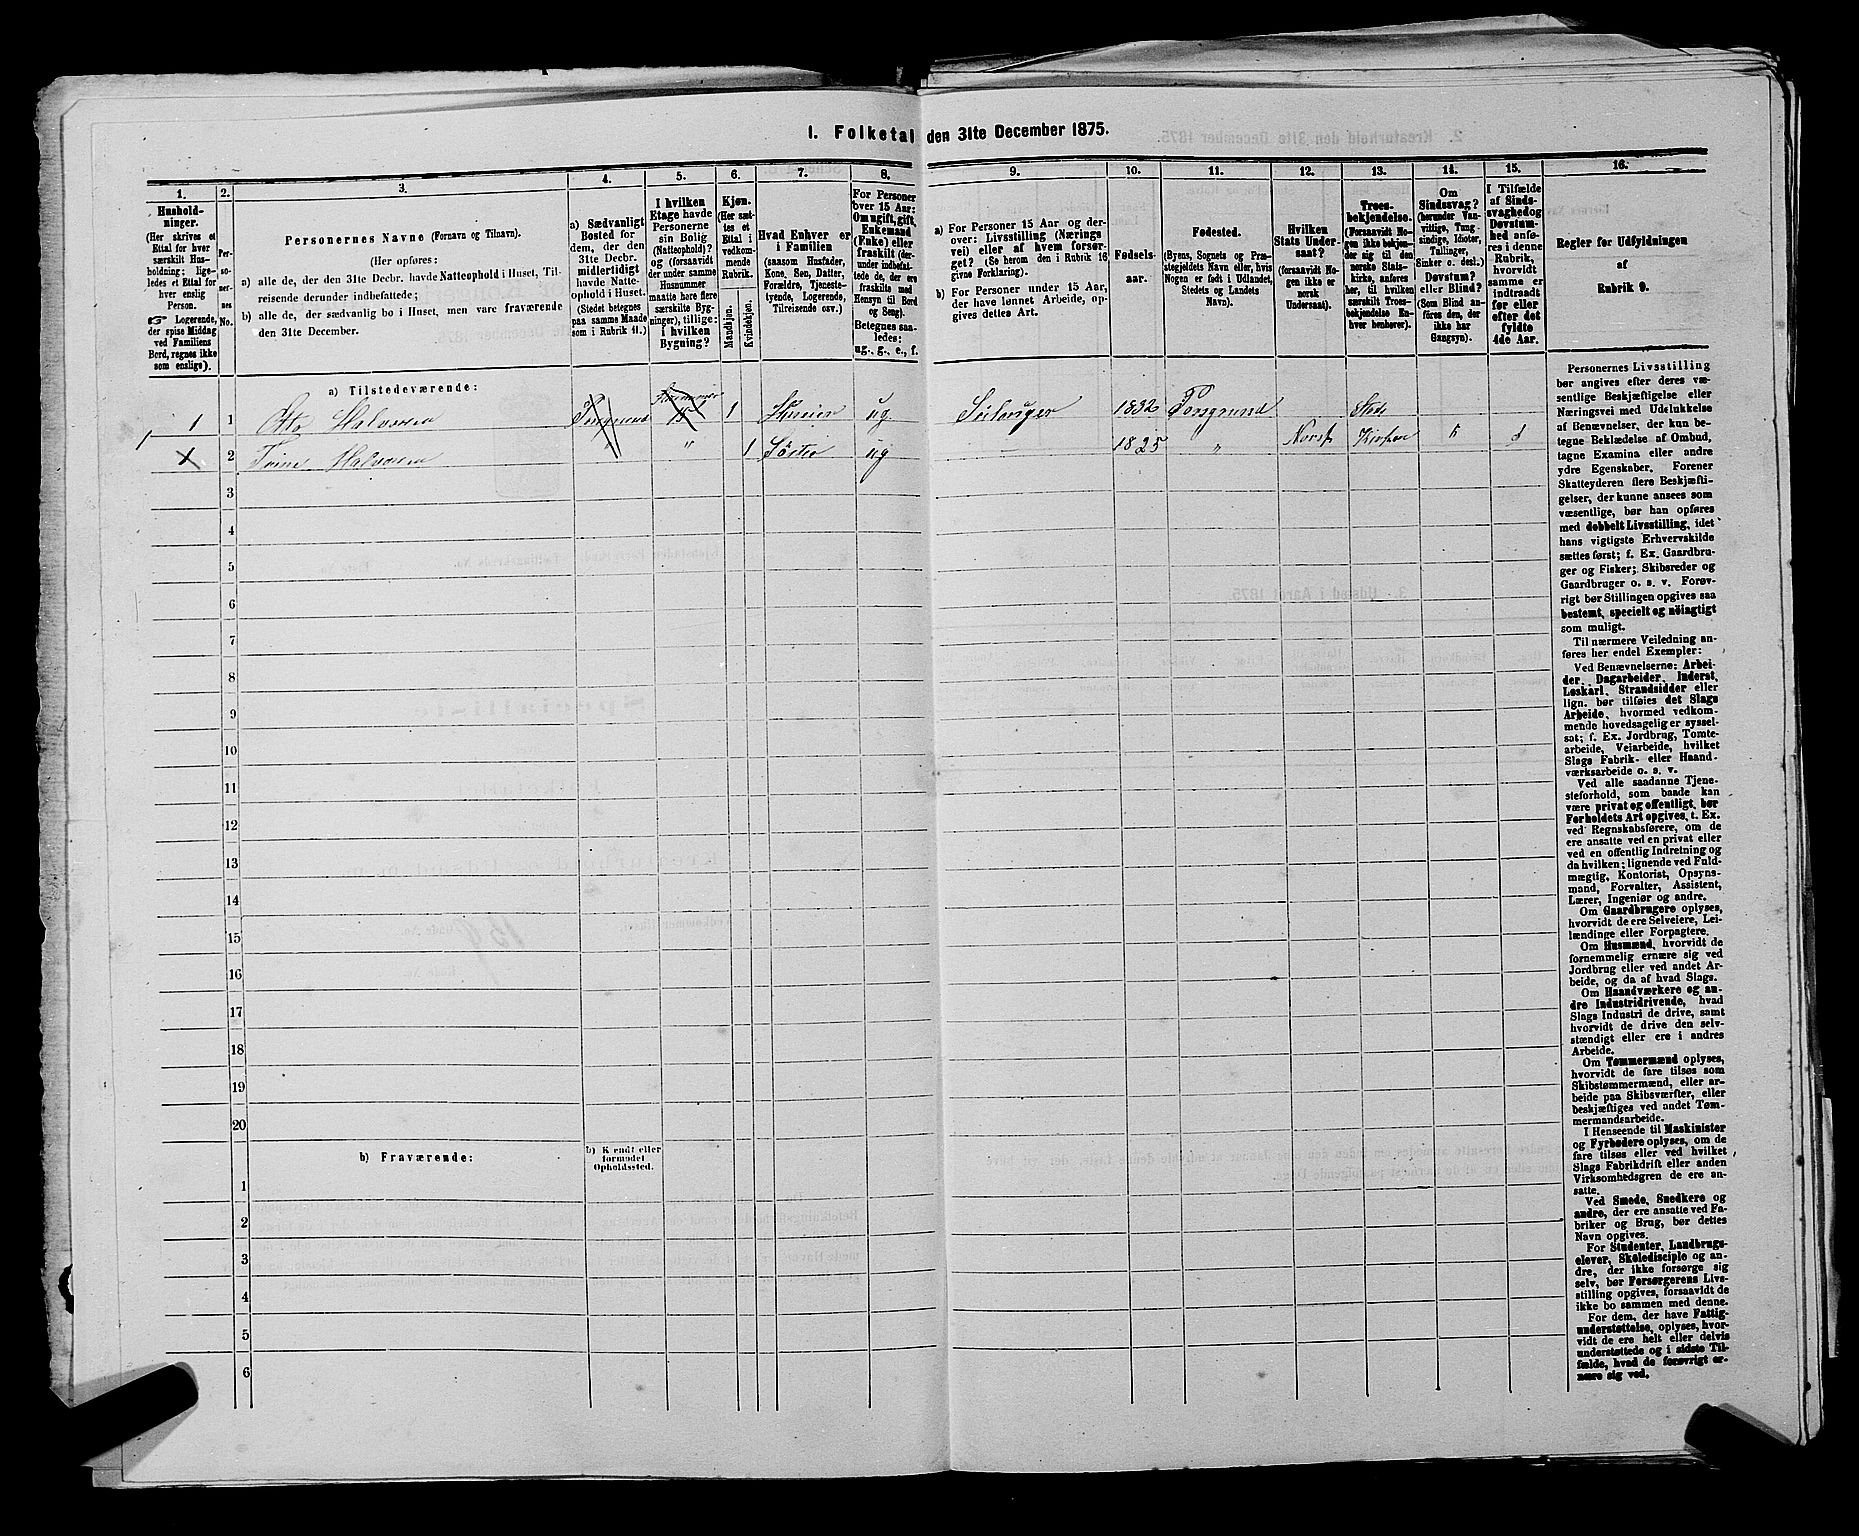 1. Folketal den 31te December 1875.
1. 2. 3. 4. 5. 6. 7. 8. 9. 10. 11. 12. 13. 14. 15. 16.
Husholdninger.
(Her skrives et
Ettal for hver
særskilt Husholdning;
ligeledes et Ettal for
hver enslig
Person.
☞ Logerende,
der spise Middag
ved Familiens
Bord, regnes ikke
som enslige).
Personernes No.
Personernes Navne (Fornavn og Tilnavn).
(Her opføres:
a) alle de, der den 31te Decbr. havde Natteophold i Huset, Tilreisende
derunder indbefattede;
b) alle de, der sædvanlig bo i Huset, men vare fraværende
den 31te December.
a) Sædvanligt
Bosted for
dem, der den
31te Decbr.
midlertidigt
havde Natteophold
i Huset.
(Stedet betegnes
paa samme Maade
som i Rubrik 11.)
I hvilken
Etage havde
Personerne
sin Bolig
(Natteophold)?
og (forsaavidt
der under samme
Husnummer
maatte høre flere
særskilte Bygninger),
tillige:
i hvilken
Bygning?
Kjøn.
(Her sættes
et
Ettal i
vedkommende
Rubrik.
Mandkjøn.
Kvindekjøn.
Hvad Enhver er
i Familien
(saasom Husfader,
Kone, Søn, Datter,
Forældre, Tjenestetyende,
Logerende,
Tilreisende osv.)
For Personer
over 15 Aar:
Om ugift, gift,
Enkemand
(Enke) eller
fraskilt (derunder
indbefattede
de, der ere
fraskilte med
Hensyn til Bord
og Seng).
Betegnes saaledes:
ug., g., e., f.
a) For Personer 15 Aar og derover:
Livsstilling (Næringsvei)
eller af hvem forsørget?
(Se herom den i Rubrik 16
givne Forklaring).
b) For Personer under 15 Aar,
der have lønnet Arbeide, opgives
dettes Art.
Fødselsaar.
Fødested.
(Byens, Sognets og Præstegjeldets
Navn eller, hvis
Nogen er født i Udlandet,
Stedets og Landets
Navn).
Hvilken
Stats Undersaat?
(forsaavidt Nogen
ikke er
norsk
Undersaat).
Troesbekjendelse.
(Forsaavidt Nogen
ikke bekjender
sig til den
norske Statskirke,
anføres
her, til hvilken
særskilt Troesbekjendelse
Enhver
henhører).
Om
Sindssvag?
(herunder Vanvittige,
Tungsindige,
Idioter,
Tullinger,
Sinker o. desl.)
Døvstum?
eller Blind?
(Som Blind anføres
den, der
ikke har
Gangsyn).
I Tilfælde
af Sindssvaghed
og
Døvstumhed
anføres
i denne
Rubrik,
hvorvidt
samme er
indtraadt
før eller
efter det
fyldte
4de Aar.
Regler for Udfyldningen
af
Rubrik 9.
a) Tilstedeværende:
1 1 Otto Halvorsen 1 ug 1832 Porsgrund Stats
1 2 Trine Halvorsen " " 1 Søster ug 1825 " Norsk Kirken
3
4
5
6
7
8
9
10
11
12
13
14
15
16
17
18
19
20
b) Fraværende:
b) Kjendt eller
formodet
Opholdssted.
1
2
3
4
5
6
Personernes Livsstilling
bør angives efter deres væsentlige
Beskjæftigelse eller
Næringsvei med Udelukkelse
af Benævnelser, der kun betegne
Beklædelse af Ombud,
tagne Examina eller andre
ydre Egenskaber. Forener
Skatteyderen flere Beskjæftigelser,
der kunne ansees som
væsentlige, bør han opføres
med dobbelt Livsstilling, idet
hans vigtigste Erhvervskilde
sættes først; f. Ex. Gaardbruger
og Fisker; Skibsreder og
Gaardbruger o. s. v. Forøvrigt
bør Stillingen opgives saa
bestemt, specielt og nöiagtigt
som muligt.
Til nærmere Veiledning anføres
her endel Exempler:
Ved Benævnelserne: Arbeider,
Dagarbeider, Inderst,
Løskarl, Strandsidder eller
lign. bør tilføies det Slags
Arbeide, hvormed vedkommende
hovedsagelig er sysselsat;
f. Ex. Jordbrug, Tomtearbeide,
Veiarbeide, hvilket
Slags Fabrik- eller Haandværksarbeide
o. s. v.
Ved alle saadanne Tjenesteforhold,
som baade kan
være privat og offentligt, bør
Forholdets Art opgives, t. Ex.
ved Regnskabsførere, om de
ere ansatte ved en privat eller
ved en offentlig Indretning og
da hvilken; lignende ved Fuldmægtig,
Kontorist, Opsynsmand,
Forvalter, Assistent,
Lærer, Ingeniør og andre.
Om Gaardbrugere oplyses,
hvorvidt de ere Selveiere, Leilændinge
eller Forpagtere.
Om Husmænd, hvorvidt de
fornemmelig ernære sig ved
Jordbrug eller ved andet Arbeide,
og da af hvad Slags.
Om Haandværkere og andre
Industridrivende, hvad
Slags Industri de drive, samt
hvorvidt de drive den selvstændigt
eller ere i andres
Arbeide.
Om Tømmermænd oplyses,
hvorvidt de fare tilsøs som
Skibstømmermænd, eller arbeide
paa Skibsværfter, eller
beskjæftiges ved andet Tømmermandsarbeide.
I Henseende til Maskinister
og Fyrbødere oplyses, om de
fare tilsøs eller ved hvilket
Slags Fabrikdrift eller anden
Virksomhedsgren de ere ansatte.
Ved Smede, Snedkere og
andre, der ere ansatte ved Fabriker
og Brug, bør dettes
Navn opgives.
For Studenter, Landbrugselever,
Skoledisciple og andre,
der ikke forsørge sig
selv, bør Forsørgerens Livsstilling
opgives, forsaavidt de
ikke bo sammen med denne.
For dem, der have Fattigunderstøttelse,
oplyses, hvorvidt
de ere helt eller delvis
understøttede og i sidste Tilfælde,
hvad de forøvrigt ernære
sig ved.